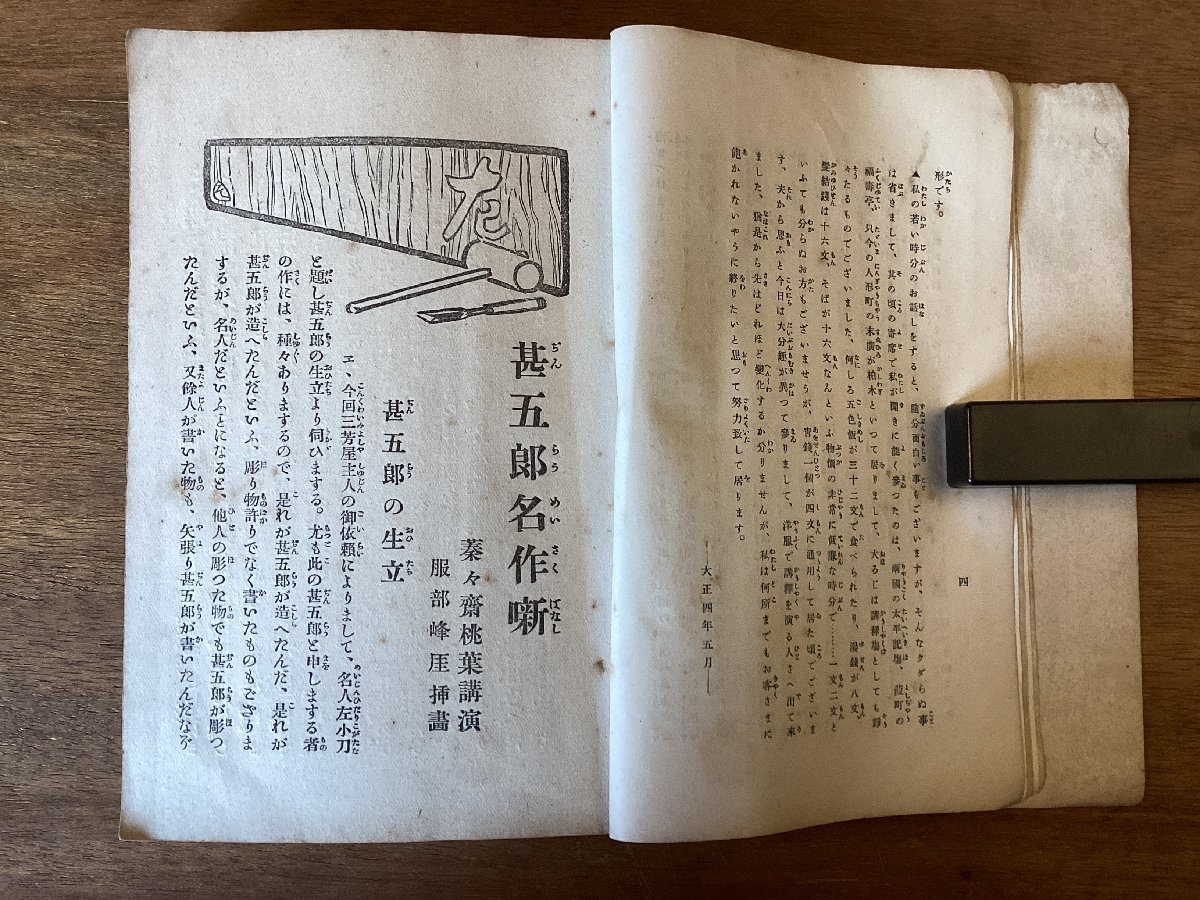 形です。
▲私の若い時分のお話しをすると、隨分面白い事もございますが、そんなクダらぬ事
は省きまして、其の頃の寄席で私が聞きに能く參つたのは、兩國の太平記場、葭町の
福壽亭、只今の人形町の末廣が柏木といつて居りまして、大るじは講釋場としても錚
々たるものでございました、何しろ五色飯が三十二文で食べられたり、湯錢が八文、
髮結錢は十六文、そばが十六文なんといふ物價の非常に低廉な時分で……一文二文と
いふても分らぬお方もございませうが、靑錢一個が四文に通用して居た頃でございま
す、夫から思ふと今日は大分趣が異つて參りまして、洋服で講釋を演る人さへ出て來
ました、猶是から先はどれほど變化するか分りませんが、私は何所までもお客さまに
飽かれないやうに終りたいと思つて努力致して居ります。
―大正四年五月―
四
左
甚五郞名作噺
蓁々齋桃葉講演
服部峰厓挿畫
甚五郞の生立
ヱ、今回三芳屋主人の御依賴によりまして、名人左小刀
と題し甚五郞の生立より伺ひまする。尤も此の甚五郞と申しまする者
の作には、種々ありまするので、是れが甚五郞が造へたんだ、是れが
甚五郞が造へたんだといふ、彫り物許りでなく書いたものもござりま
するが、名人だといふことになると、他人の彫つた物でも甚五郞が彫つ
たんだといふ、又餘人が書いた物も、矢張り甚五郞が書いたんだなぞ